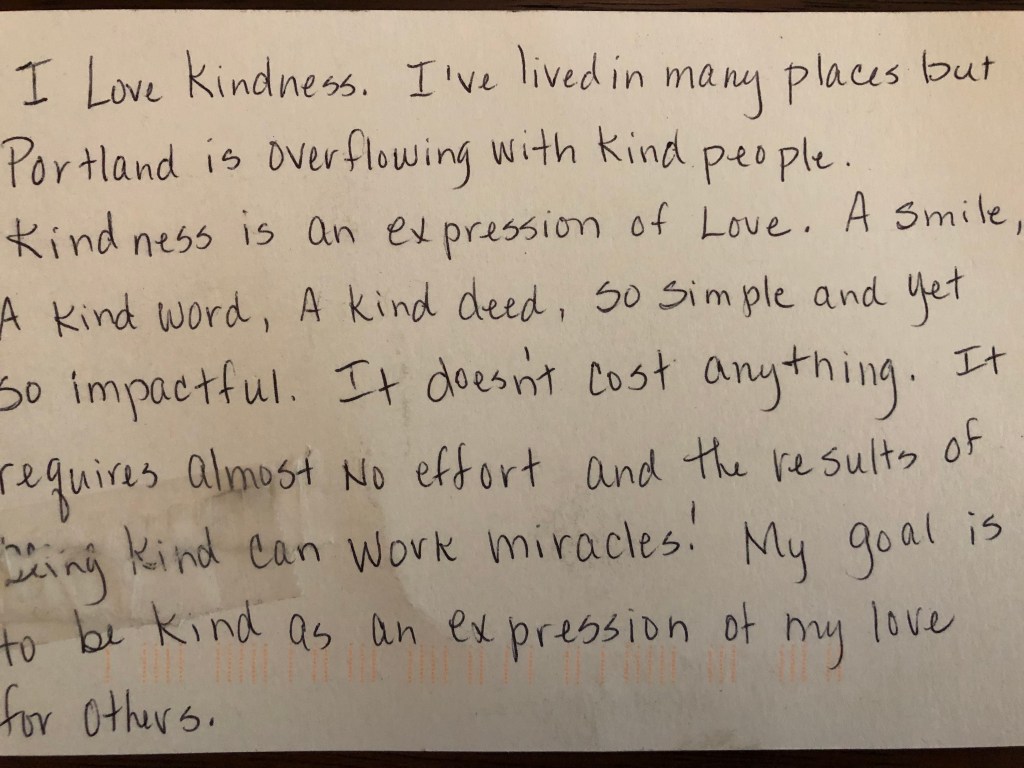 I Love Kindness. I've lived in many places but
Portland is overflowing with kind people.
Kindness is an expression of Love. A smile,
A kind word, A kind deed, so simple and yet
so impactful. It doesn't cost anything. It
requires almost No effort and the results of
being kind can work miracles! My goal is
to be kind as an expression of my love
for others.